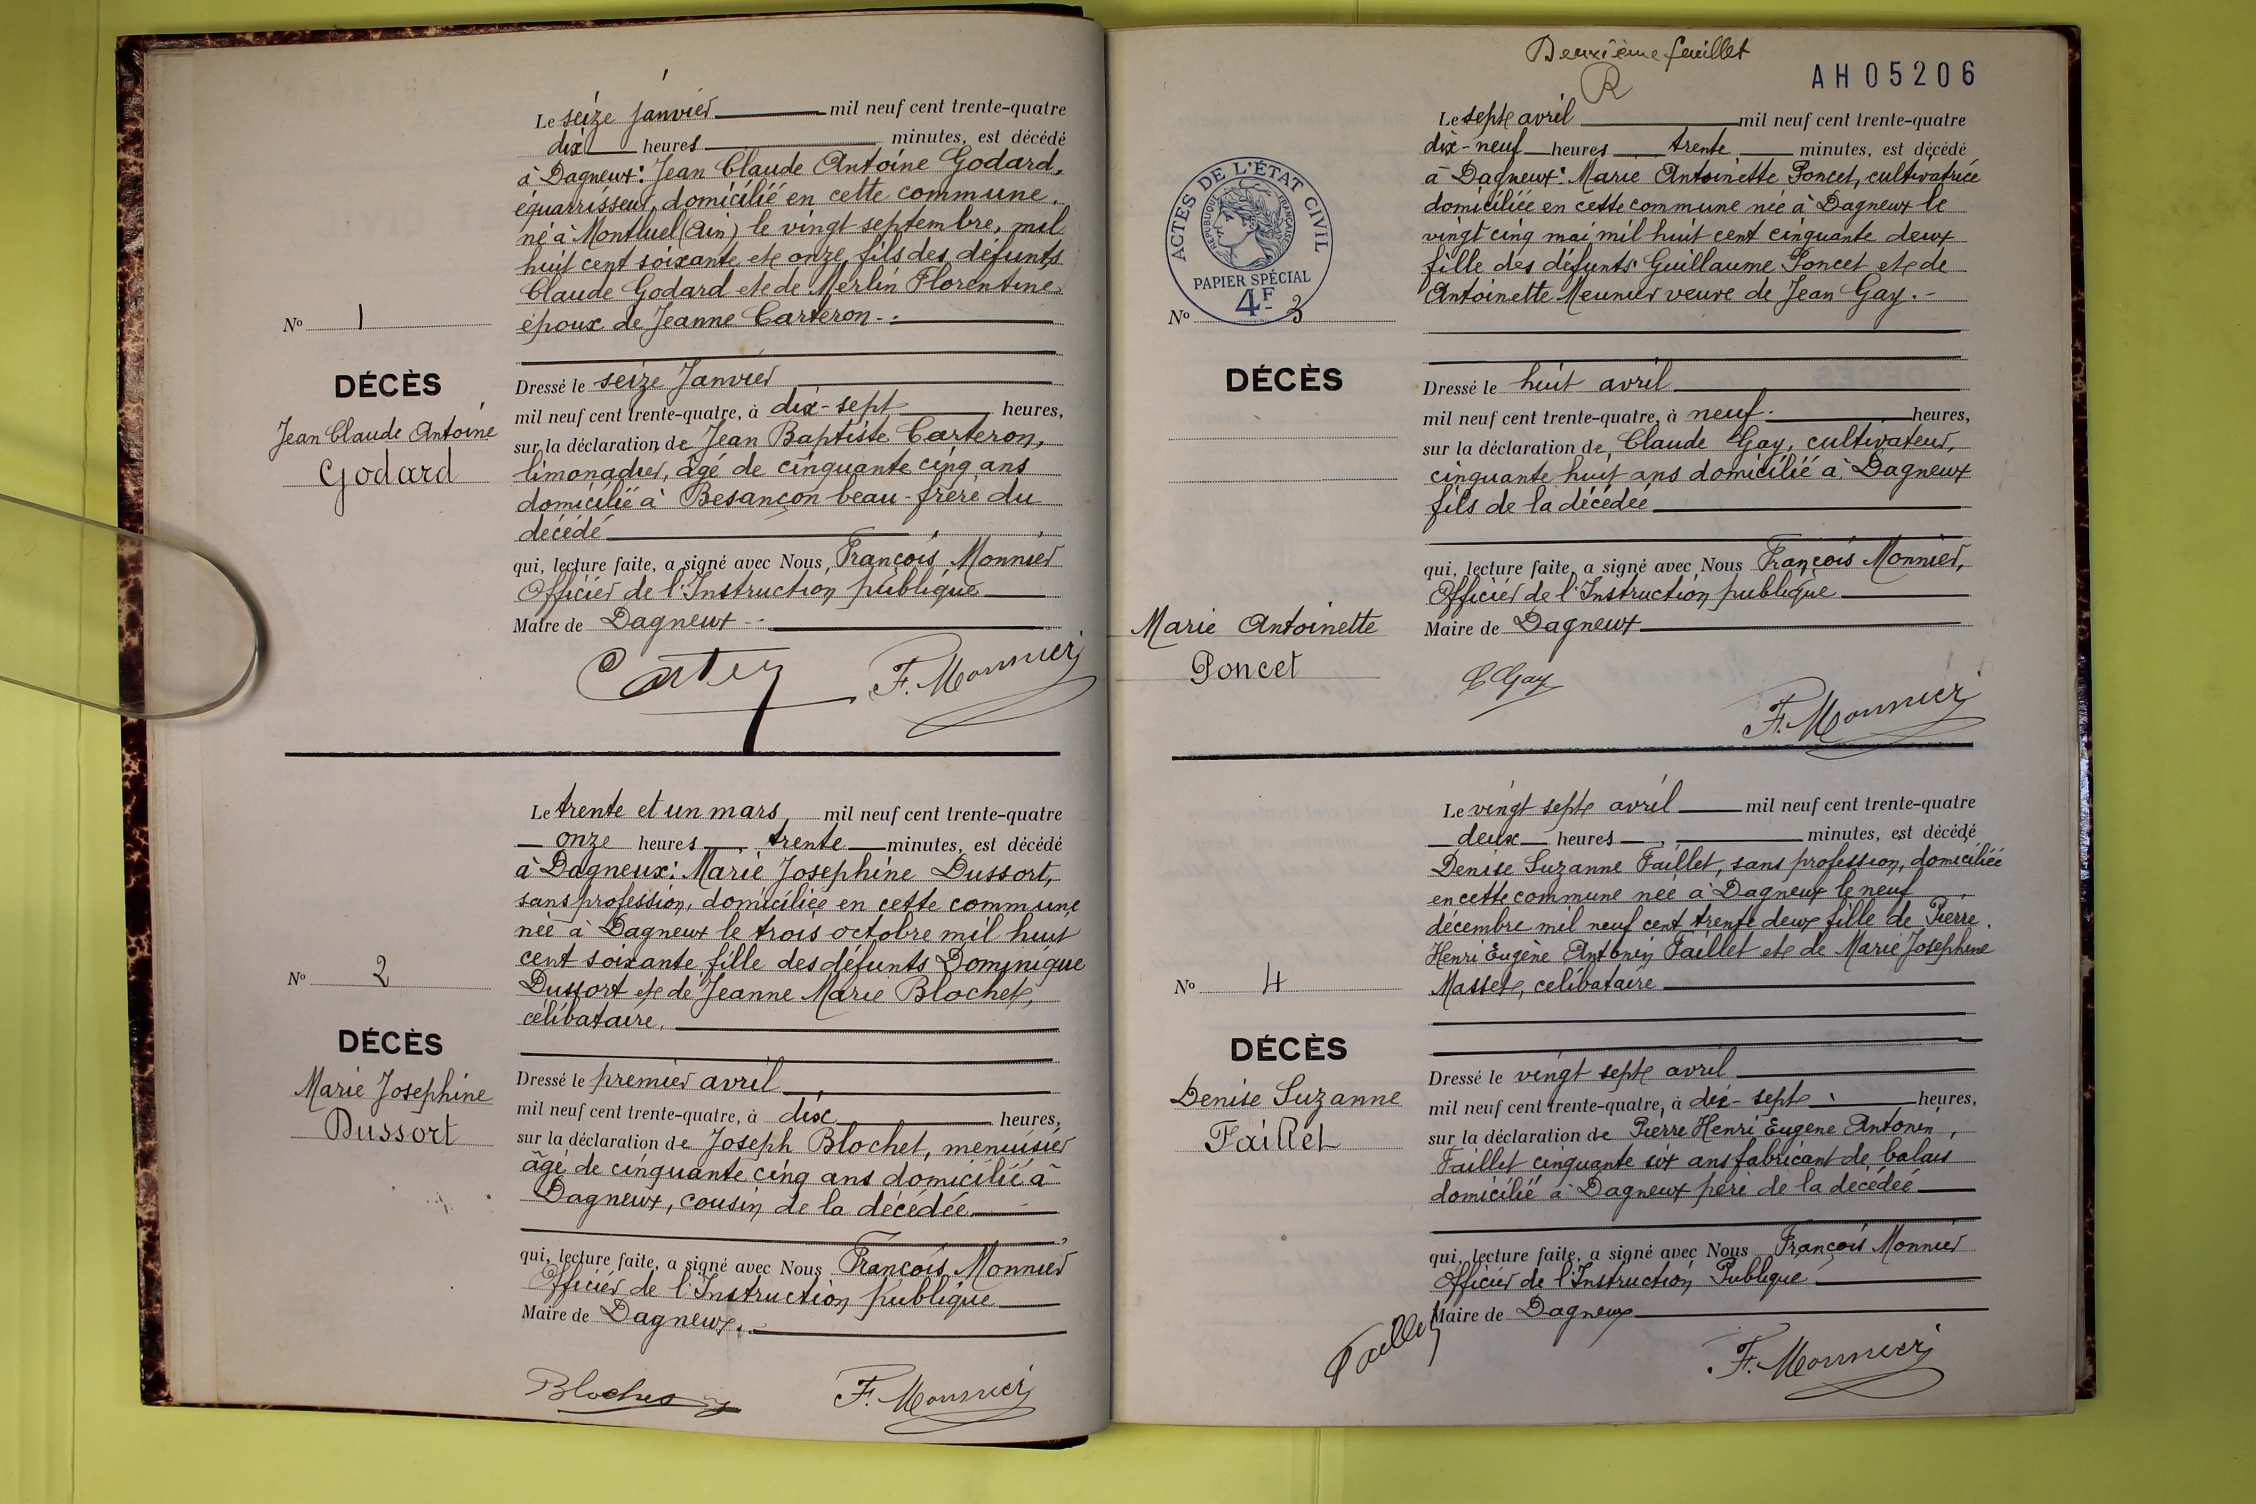 Le seize janvier mil neuf cent trente-quatre
dix heures minutes, est décédé
à Dagneux: Jean Claude Antoine Godard,
équarrisseur, domicilié en cette commune.
né à Montluel (Ain) le vingt septembre, mil
huit cent soixante et onze, fils des défunts
Claude Godard et de Merlin Florentine.
époux de Jeanne Carteron-.
No 1
DÉCÈS
Jean Claude Antoine
Godard
Dressé le seize Janvier
mil neuf cent trente-quatre, à dix-sept heures,
sur la déclaration de Jean Baptiste Carteron,
limonadier, âgé de cinquante cinq ans
domicilié à Besançon beau-frère du
décédé
qui, lecture faite, a signé avec Nous, François Monnier
Officier de l'Instruction publique
Maire de Dagneux
F. Monnier
Le trente et un mars mil neuf cent trente-quatre
onze heures trente minutes, est décédé
à Dagneux: Marie Josephine Dussort,
sans profession, domiciliée en cette commune
née à Dagneux le trois octobre mil huit
cent soixante, fille des défunts Dominique
Dussort et de Jeanne Marie Blochet,
célibataire.
No 2
DÉCÈS
Marie Josephine
Dussort
Dressé le premier avril
mil neuf cent trente-quatre, à dix heures,
sur la déclaration de Joseph Blochet, menuisier
âgé de cinquante cinq ans domicilié à
Dagneux, cousin de la décédée
qui, lecture faite, a signé avec Nous François Monnier
Officier de l'Instruction publique
Maire de Dagneux.
Blochet F. Monnier
Deuxième feuillet
R
AH05206
ACTES DE L'ÉTAT CIVIL
RÉPUBLIQUE FRANÇAISE
PAPIER SPÉCIAL
4F
Le sept avril mil neuf cent trente-quatre
dix-neuf heures trente minutes, est décédé
a Dagneux: Marie Antoinette Poncet, cultivatrice
domiciliée en cette commune née à Dagneux le
vingt cinq mai mil huit cent cinquante deux
fille des défunts Guillaume Poncet et de
Antoinette Meunier veuve de Jean Gay.-
No 3
DÉCÈS
Marie Antoinette
Poncet
Dressé le huit avril
mil neuf cent trente-quatre, à neuf. heures,
sur la déclaration de Claude Gay, cultivateur,
cinquante huit ans domicilié à Dagneux
fils de la décédée
qui, lecture faite, a signé avec Nous François Monnier,
Officier de l'Instruction publique
Maire de Dagneux
C Gay
F. Monnier
Le vingt sept avril mil neuf cent trente-quatre
deux heures minutes, est décédé
Denise Suzanne Faillet, sans profession, domiciliée
en cette commune née à Dagneux le neuf
décembre mil neuf cent trente deux fille de Pierre
Henri Eugène Antonin Faillet et de Marie Josephine
Masset, célibataire
No 4
DÉCÈS
Denise Suzanne
Faillet
Dressé le vingt sept avril
mil neuf cent trente-quatre, à dix-sept heures,
sur la déclaration de Pierre Henri Eugene Antonin,
Faillet cinquante six ans fabricant de balais
domicilié à Dagneux père de la décédée
qui, lecture faite, a signé avec Nous François Monnier
Officier de l'Instruction Publique
Maire de Dagneux
Faillet
F. Monnier